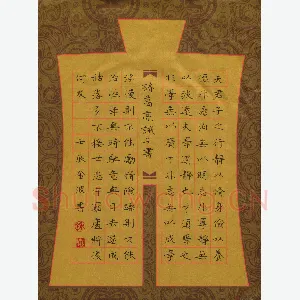 夫君子之行靜以修身儉以養
德非澹泊無以明志非寧靜無
以致遠夫學須靜也才須學也
非學無以廣才非志無以成學
諸葛亮誡子書
淫慢則不能勵精險躁則不能
冶性年與時馳意與日去遂成
枯落多不接世悲守窮廬將復
何及